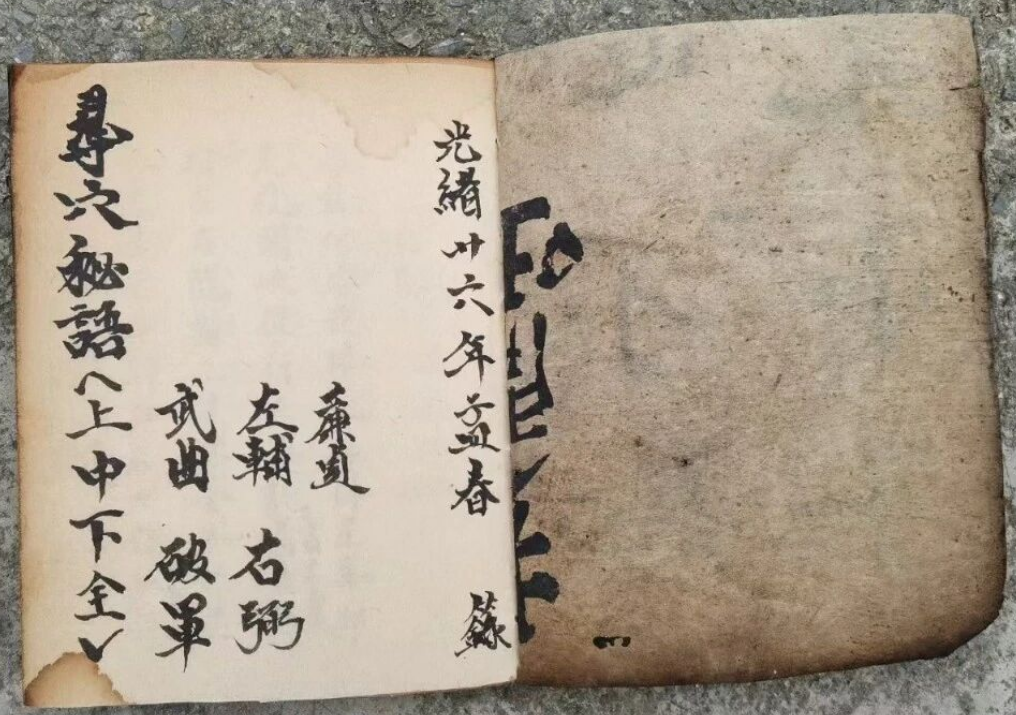 光緒卄六年孟春 籙
廉貞
左輔 右弼
武曲 破軍
尋穴秘語︿上中下全﹀